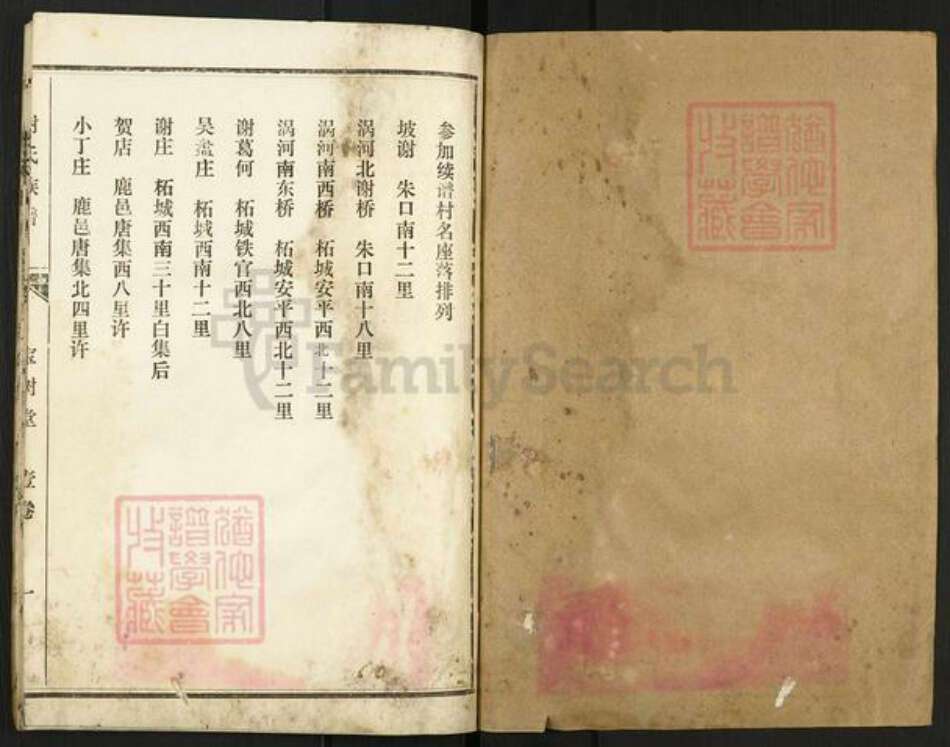 参加续谱村名座落排列
坡谢 朱口南十二里
涡河北谢桥 朱口南十八里
涡河南西桥 柘城安平西北十二里
涡河南东桥 柘城安平西北十二里
谢葛何 柘城铁官西北八里
吴盆庄 柘城西南十二里
谢庄 柘城西南三十里白集后
贺店 鹿邑唐集西八里许
小丁庄 鹿邑唐集北四里许
谢氏族谱 宝树堂 壹卷 一
FamilySearch
猶他家
譜學會
收藏
猶他家
譜學會
收藏
60